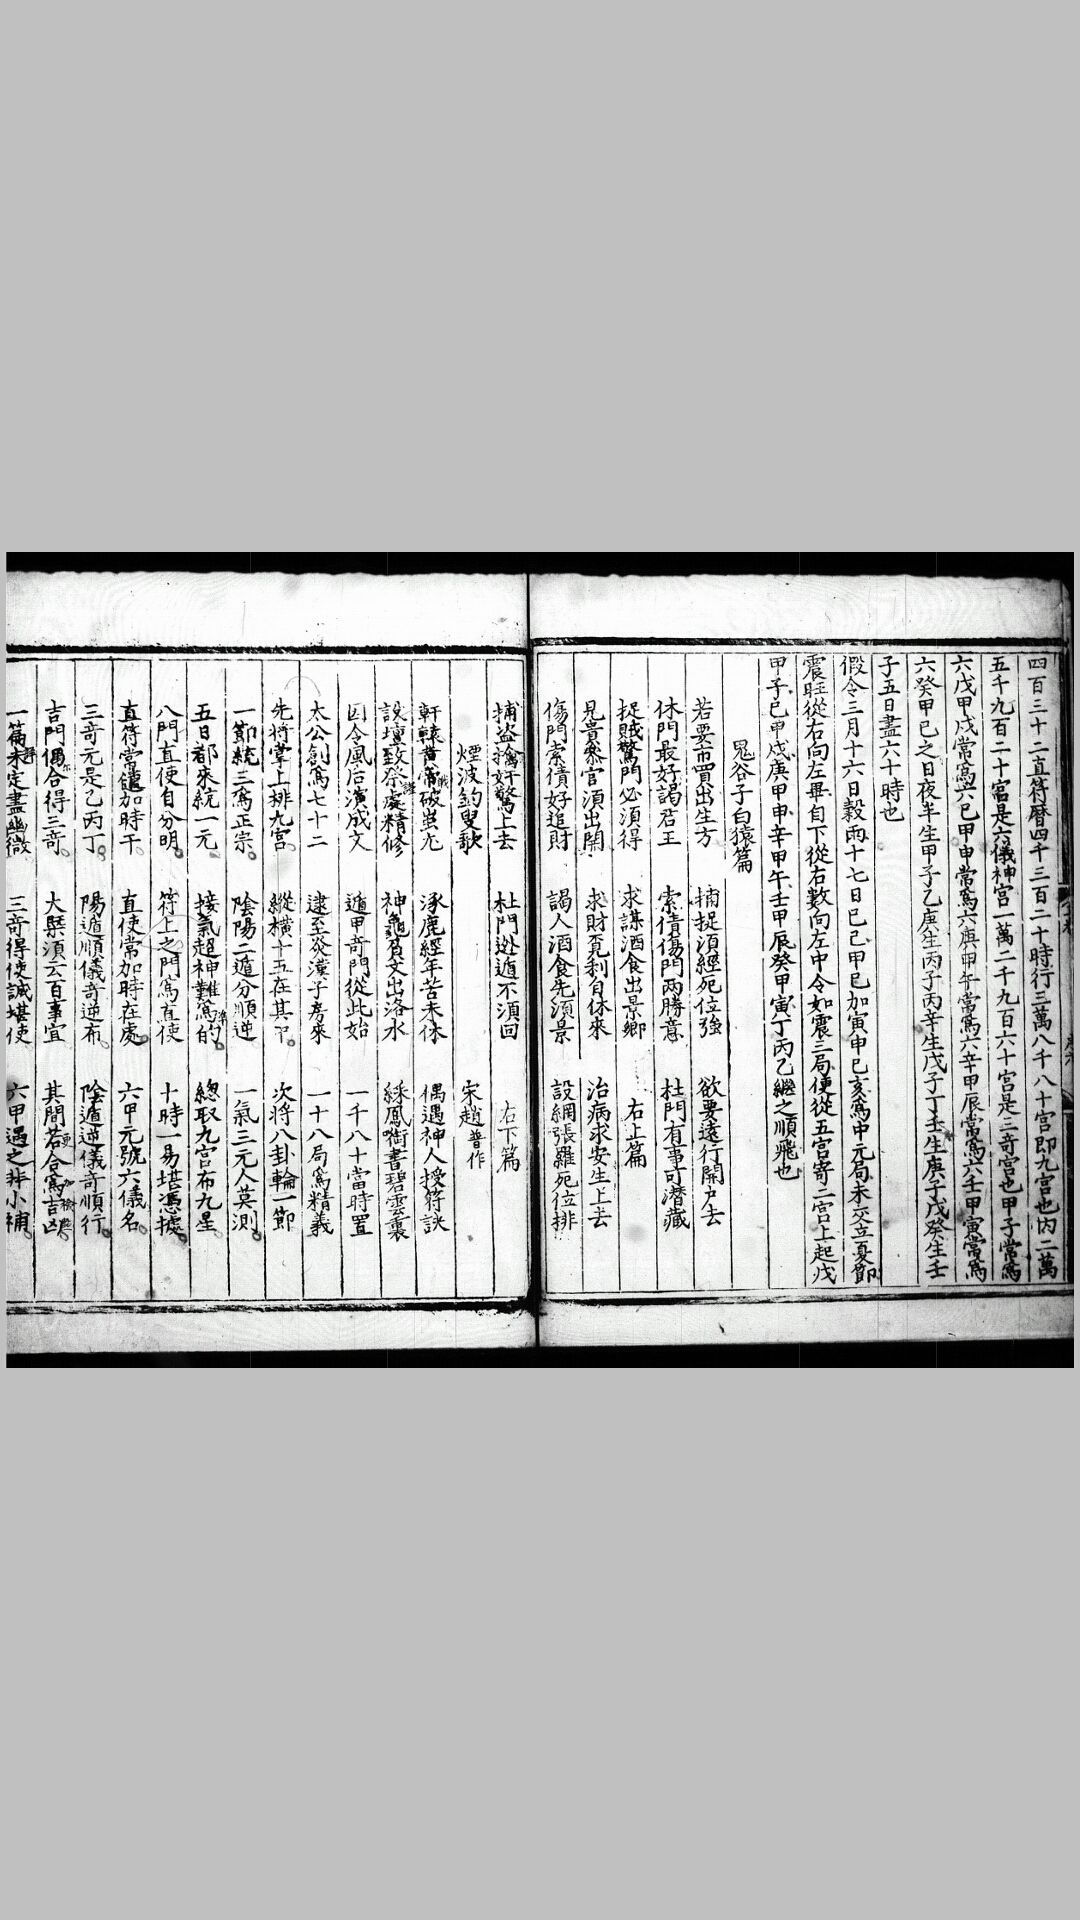 四百三十二直符曆四千三百二十時行三萬八千八十宮即九宮也內二萬
五千九百二十宮是六儀神宮一萬二千九百六十宮是三奇宮也甲子常爲
六戊甲戌常爲六己甲申常爲六庚甲午常爲六辛甲辰常爲六壬甲寅常爲
六癸甲己之日夜半生甲子乙庚生丙子丙辛生戊子丁壬生庚子戊癸生壬
子五日盡六十時也
假令三月十六日穀雨十七日己巳甲己加寅申巳亥爲中元局未交立夏節
震旺從右向左畢自下從右數向左中令如震三局便從五宮寄二宮上起戊
甲子己甲戌庚甲申辛甲午壬甲辰癸甲寅丁丙乙繼之順飛也
鬼谷子白猿篇
若要市買出生方 捕捉須經死位強 欲要遠行開戶去
休門最好謁君王 索債傷門兩勝意 杜門有事可潛藏
捉賊驚門必須得 求謀酒食出景鄉 右上篇
見貴參官須出開 求財覓利自休來 治病求安生上去
傷門索債好追財 謁人酒食先須景 設網張羅死位排
捕盜擒奸驚上去 杜門逃遁不須回 右下篇
煙波釣叟歌 宋趙普作
軒轅黃帝破蚩尤 涿鹿經年苦未休 偶遇神人授符訣
設壇致祭虔精修 神龜負文出洛水 綵鳳啣書碧雲裏
因令風后演成文 遁甲奇門從此始 一千八十當時置
太公創爲七十二 逮至炎漢子房來 一十八局爲精義
先將掌上排九宮 縱橫十五在其中 次將八卦輪一節
一節統三爲正宗 陰陽二遁分順逆 一氣三元人莫測
五日都來統一元 接氣超神難爲的 總取九宮布九星
八門直使自分明 符上之門爲直使 十時一易堪憑據
直符常遣加時干 直使常加時在處 六甲元號六儀名
三奇元是乙丙丁 陽遁順儀奇逆布 陰遁逆儀奇順行
吉門偶合得三奇 大槩須云百事宜 其間若合爲吉凶
一篇未定盡幽微 三奇得使誠堪使 六甲遇之非小補